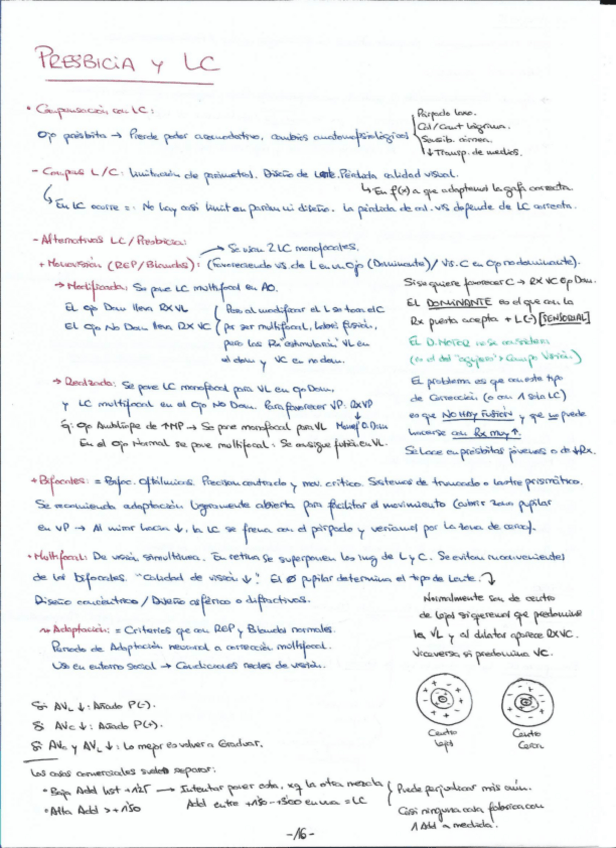 PRESBICIA Y LC
• Compensación con LC:
Ojo présbita → Pierde poder acomodativo, cambios anatomofisiológicos
Párpado laxo.
Cal/Cant lágrima.
Sensib. córnea.
↓ Transp. de medios.
- Compens L/C: limitación de parámetros. Diseño de lente. Pérdida calidad visual.
↳ En f(x) a que adaptemos la gafa correcta
↳ En LC ocurre =. No hay casi limit en parám ni diseño. La pérdida de cal. vis depende de LC correcta.
- Alternativas LC/Presbicia:
→ Se usan 2 LC monofocales.
+ Monovisión (RGP/Blandas): (Favoreciendo vs. de L en un Ojo (Dominante)/ Vs. C en Ojo no dominante).
→ Modificada: Se pone LC multifocal en AO.
El Ojo Dom lleva RX VL
El Ojo No Dom lleva RX VC
Pero al modificar el L se toca el C
por ser multifocal, habrá fusión,
pero las Rx "estimularán" VL en
el dom y VC en no dom.
Si se quiere favorecer C → RX VC Ojo Dom.
El DOMINANTE es el que con la
Rx puesta acepta + L(-) [SENSORIAL]
El D. MOTOR no se considera
(es el del "agujero" → Campo Visión)
→ Realzada: Se pone LC monofocal para VL en ojo Dom,
y LC multifocal en el Ojo No Dom. Para favorecer VP: RX VP
↓
Monof O. Dom
Ej: Ojo Ambliope de ↑MP → Se pone monofocal para VL
En el Ojo Normal se pone multifocal: Se consigue fusión en VL.
El problema es que con este tipo
de Corrección (o con 1 sola LC)
es que NO HAY FUSIÓN y que no puede
hacerse con Rx muy ↑.
Se hace en présbitas jóvenes o de ↓Rx.
+ Bifocales: = Bifoc. Oftálmicas. Precisan centrado y mov. crítico. Sistemas de truncado o lastre prismático.
Se recomienda adaptación ligeramente abierta para facilitar el movimiento (cubrir zona pupilar
en VP → Al mirar hacia ↓, la LC se frena con el párpado y veríamos por la zona de cerca).
+ Multifocal: De visión simultánea. En retina se superponen las img de L y C. Se evitan inconvenientes
de las bifocales. "Calidad de visión ↓". El Ø pupilar determina el tipo de lente.
Diseño concéntrico / Diseño asférico o difractivos.
Normalmente son de centro
de lejos si queremos que predomine
la VL y al dilatar aparece RX VC.
Viceversa si predomina VC.
→ Adaptación: = Criterios que con RGP y Blandas normales.
Periodo de Adaptación neuronal a corrección multifocal.
Uso en entorno social → Condiciones reales de visión.
Centro
lejos
Centro
Cerca
Si AVL ↓: Añado P(-).
Si AVC ↓: Añado P(+).
Si AVC y AVL ↓: Lo mejor es volver a Graduar.
Las casas comerciales suelen separar:
• Baja Add hst +125 → Intentar poner esta, xq la otra mezcla
• Alta Add > +150
Add entre +150 - +300 en una = LC
Puede perjudicar más aún.
Casi ninguna casa fabrica con
1 Add a medida.
-16-